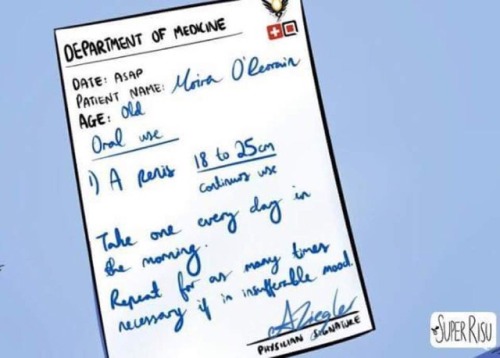 DEPARTMENT OF MEDICINE
DATE: ASAP
PATIENT NAME: Moira O'Deorain
AGE: Old
Oral use
1) A penis 18 to 25cm
continuos use
Take one every day in
the morning.
Repeat for as many times
necessary if in insufferable mood.
AZiegler
PHYSICIAN SIGNATURE
SUPER RISU